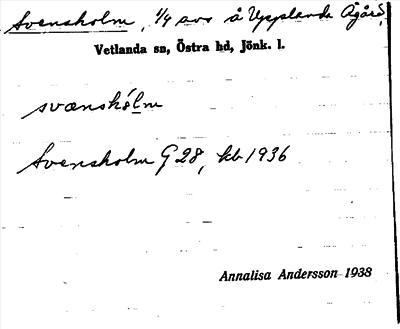 Svensholm, 1/4 avs å Upplanda Ägård,
Vetlanda sn, Östra hd, Jönk. l.
svænshólm
Svensholm G 28, kb 1936
Annalisa Andersson 1938